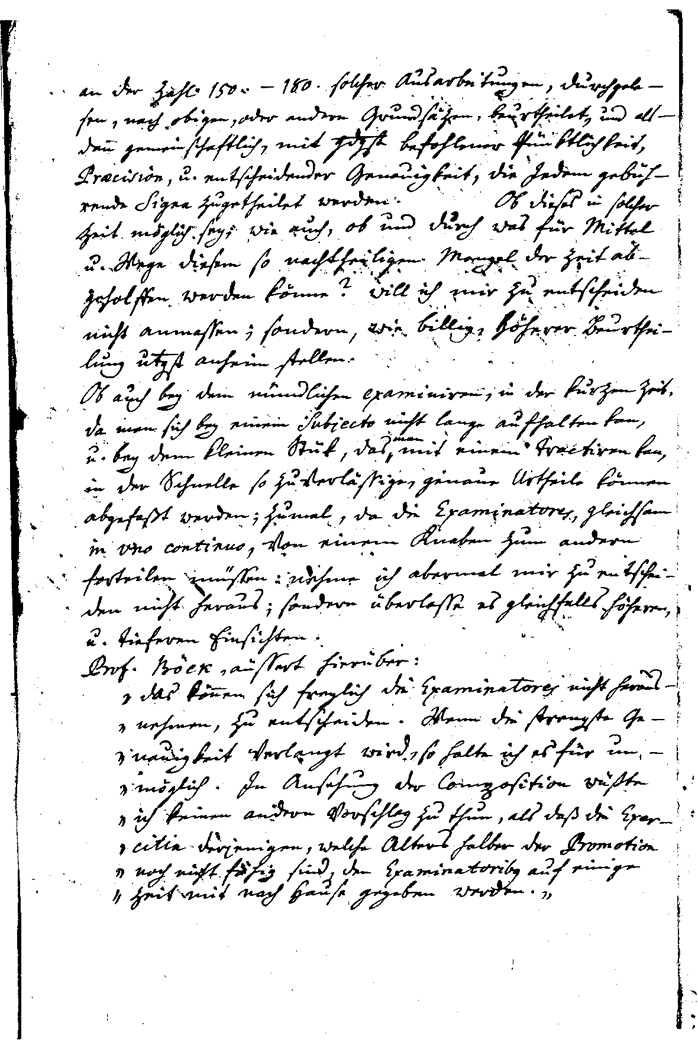 an der Zahl 150. – 180. solcher Ausarbeitungen, durchgele-
sen, nach obigen, oder andern Grundsäzen, beurtheilet, und als-
dañ gemeinschaftlich, mit gdgst befohlener Pünktlichkeit,
Præcision, u. entscheidender Genauigkeit, die Jedem gebüh-
rende Signa zugetheilet werden. Ob dieses in solcher
Zeit möglich sey; wie auch, ob und durch was für Mittel
u. Wege diesem so nachtheiligen Mangel der Zeit ab-
geholffen werden könne? will ich mir zu entscheiden
nicht anmassen; sondern, wie billig, höherer Beurthei-
lung utgst anheim stellen.
Ob auch bey dem mündlichen examiniren, in der kurzen Zeit,
da man sich bey einem Subjecto nicht lange aufhalten kan,
u. bey dem kleinen Stük, das man mit einem tractiren kan,
in der Schnelle so zuverlässige, genaue Urtheile können
abgefaßt werden; zumal, da die Examinatores, gleichsam
in vno continuo, von einem Knaben zum andern
forteilen müssen: nehme ich abermal mir zu entschei-
den nicht heraus; sondern überlasse es gleichfalls höheren,
u. tieferen Einsichten.
Prof. Böck, äussert hierüber:
„ das können sich freylich die Examinatores nicht heraus-
„ nehmen, zu entscheiden. Wenn die strengste Ge-
„ nauigkeit verlangt wird, so halte ich es für un-
„ möglich. In Ansehung der Composition wüßte
„ ich keinen andern Vorschlag zu thun, als daß die Exer-
„ citia derjenigen, welche Alters halber der Promotion
„ noch nicht fähig sind, den Examinatoribq auf einige
„ Zeit mit nach Hause gegeben werden. „